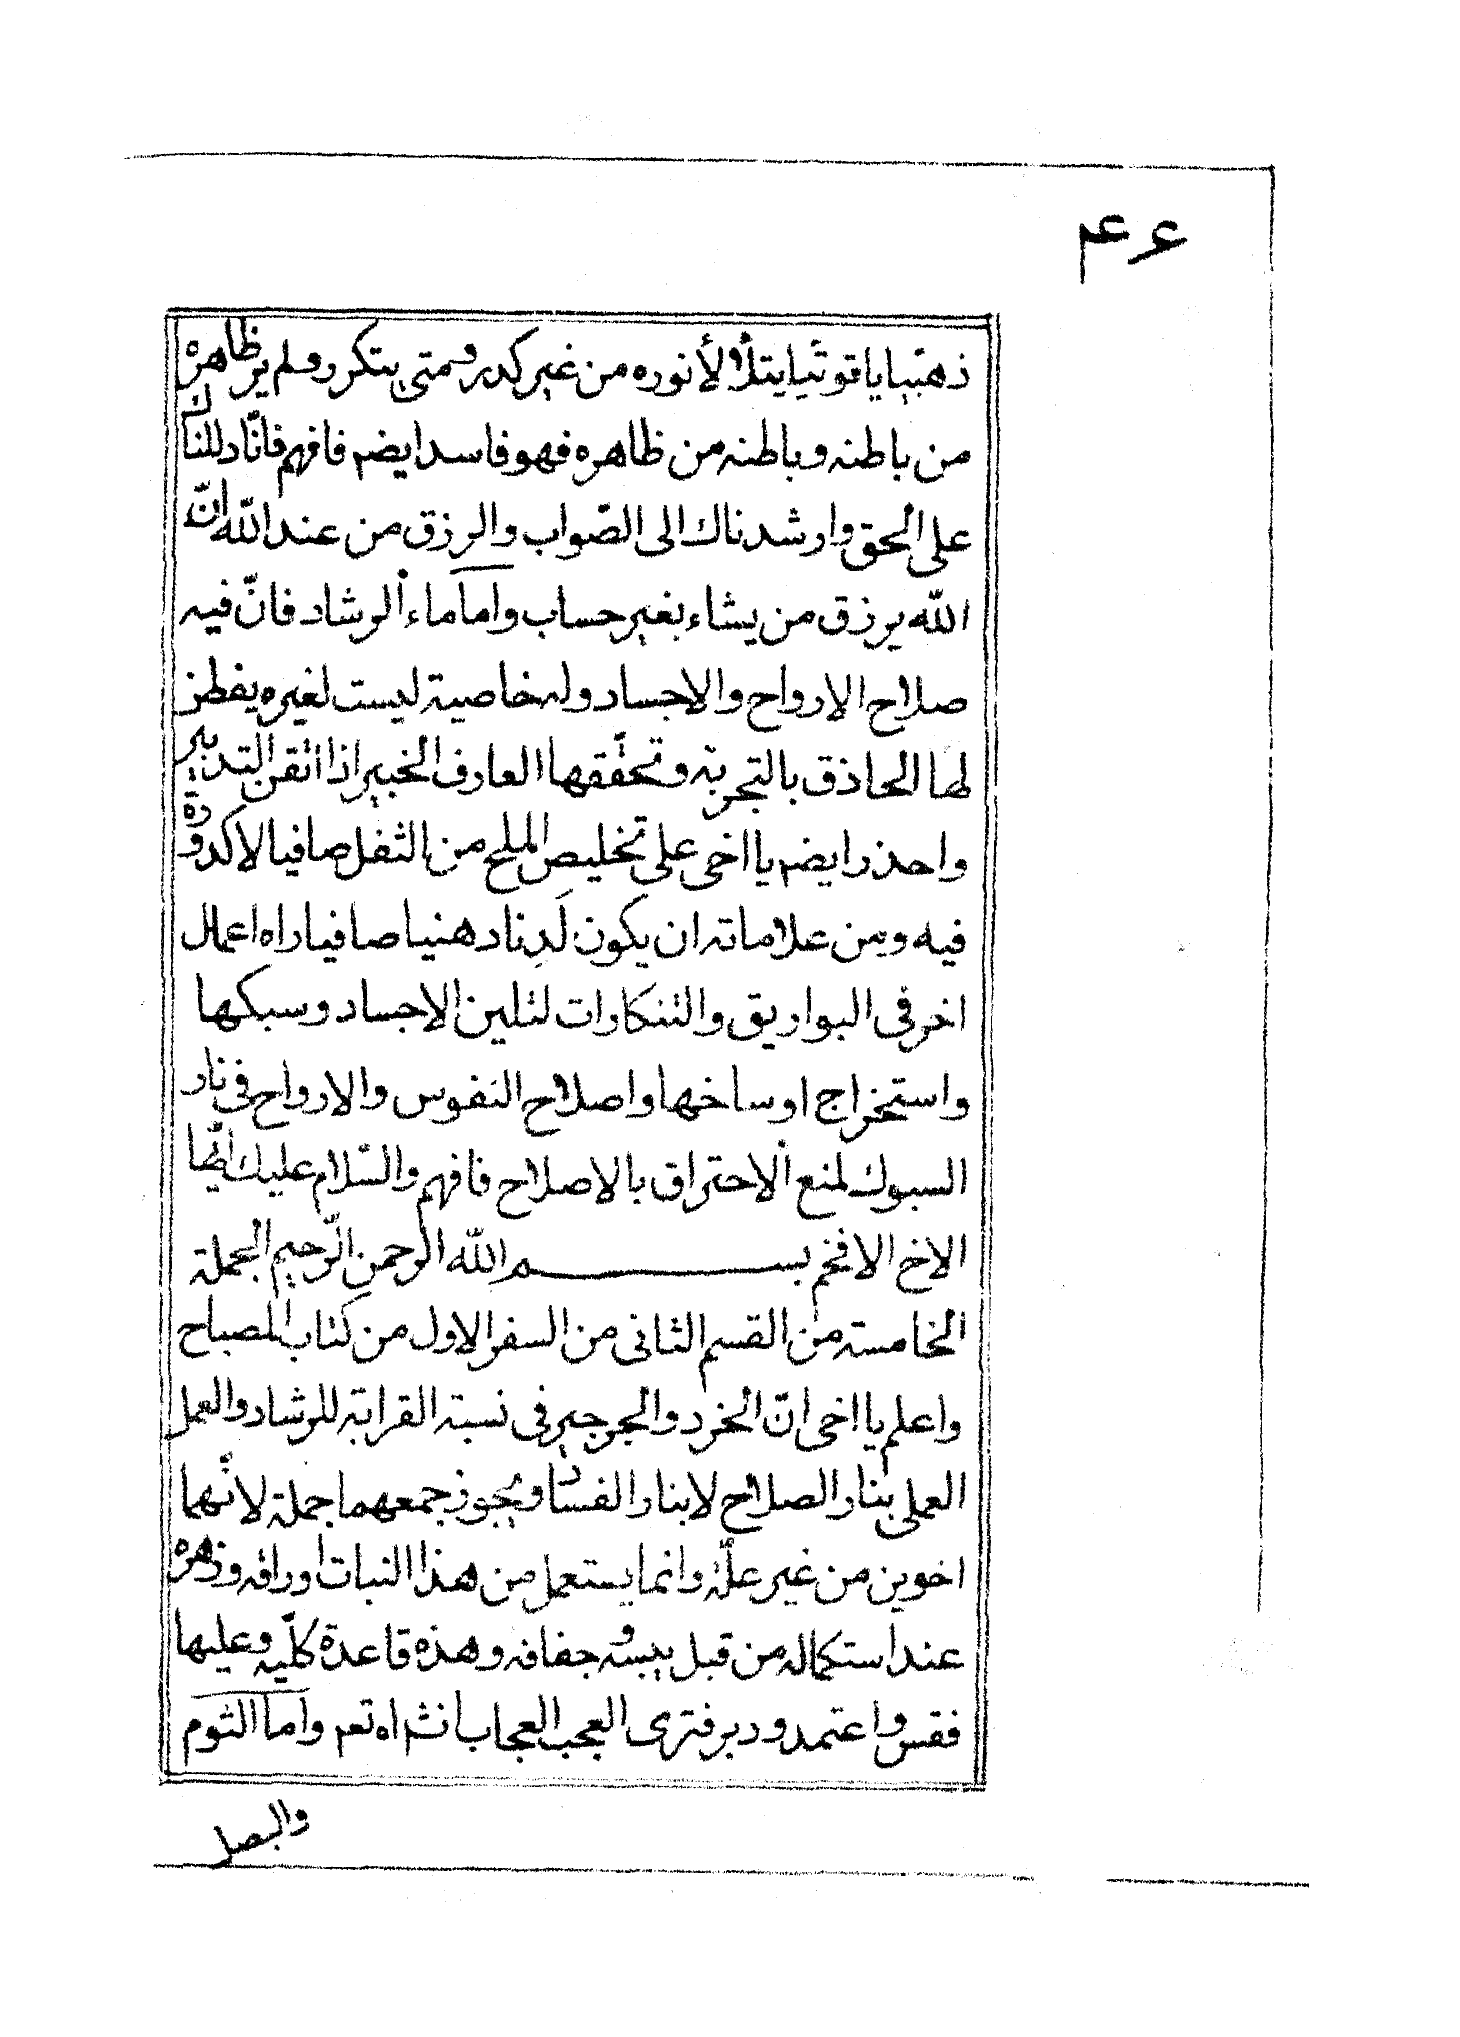 ذهبيا ياقوتيا يتلألأ نوره من غير كدر ومتى يتكرر ولم ير ظاهره
من باطنه وباطنه من ظاهره فهو فاسد ايضم فافهم فانا دللناك
على الحق وارشدناك الى الصّواب والرزق من عند الله انّ
الله يرزق من يشاء بغير حساب واما ماء الرشاد فانّ فيه
صلاح الارواح والاجساد وله خاصية ليست لغيره يفطن
لها الحاذق بالتجربة وتحقّقها العارف الخبير اذا اتقن التدبير
واحذر ايضم يا اخى على تخليص الملح من الثفل صافيا لا كدورة
فيه ومن علاماته ان يكون لدنا دهنيا صافيا راه اعمال
اخر فى البواريق والتنكارات لتليين الاجساد وسبكها
واستخراج اوساخها واصلاح النفوس والارواح فى نار
السبوك لمنع الاحتراق بالاصلاح فافهم والسّلام عليك ايّها
الاخ الافخم بسم الله الرحمن الرّحيم الجملة
الخامسة من القسم الثانى من السفر الاول من كتاب المصباح
واعلم يا اخى انّ الخرد والجرجير فى نسبة القرابة للرشاد والعمل
العملى بنار الصلاح لا بنار الفساد ويجوز جمعهما جملة لانّهما
اخوين من غير علّة وانما يستعمل من هذا النبات اوراقه وزهره
عند استكماله من قبل يبسه وجفافه وهذه قاعدة كلّيه وعليها
فقس واعتمد ودبر فترى العجب العجاب انشم اه تعم واما الثوم
والبصل